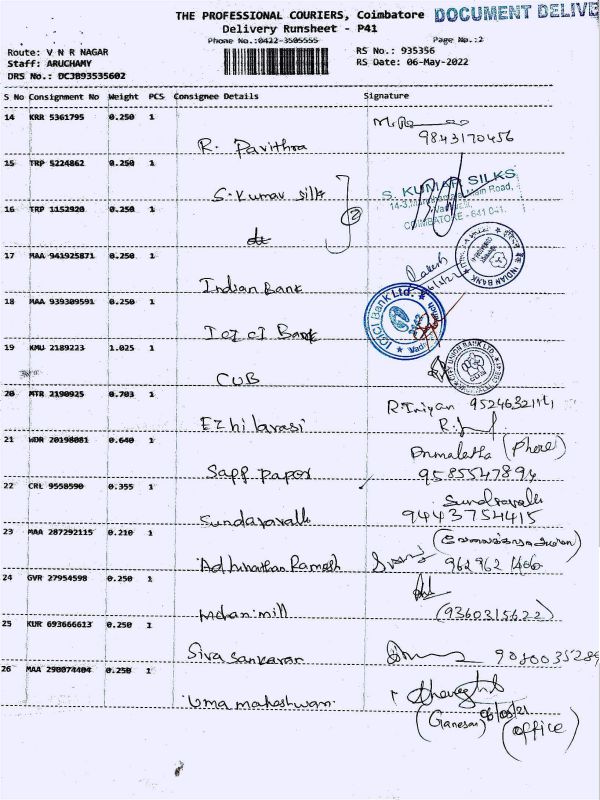 THE PROFESSIONAL COURIERS, Coimbatore
DOCUMENT DELIVE
Delivery Runsheet - P41
Phone No.:0422-3505555
Page No.:2
Route: V N R NAGAR
RS No.: 935356
Staff: ARUCHAMY
RS Date: 06-May-2022
DRS No.: DCJB93535602
S No Consignment No Weight PCS Consignee Details Signature
14 KRR 5361795 0.250 1
9843170456
R. Pavithra
15 TRP 5224862 0.250 1
S. Kumar Silk
S. KUMAR SILKS
Main Road,
COIMBATORE - 641 041.
16 TRP 1152920 0.250 1
2
17 MAA 941925871 0.250 1
Indian Bank
INDIAN BANK
18 MAA 939309591 0.250 1
ICICI Bank
ICICI Bank Ltd.
19 KMU 2189223 1.025 1
CUB
UNION BANK LTD.
20 MTR 2190925 0.703 1
Ezhilarasi
R. Iniyan
21 WDR 20198081 0.640 1
Sapp papor
(Phone)
9585547894
22 CRL 9558590 0.355 1
Sundaravalli
Sundravalli
9443754415
23 MAA 287292115 0.210 1
Ramesh
962962 1466
24 GVR 27954598 0.250 1
mill
(9360315622)
25 KUR 693666613 0.250 1
Siva sankarar
9080035289
26 MAA 290074404 0.250 1
Uma maheshwari
(Ganesan)
(Office)